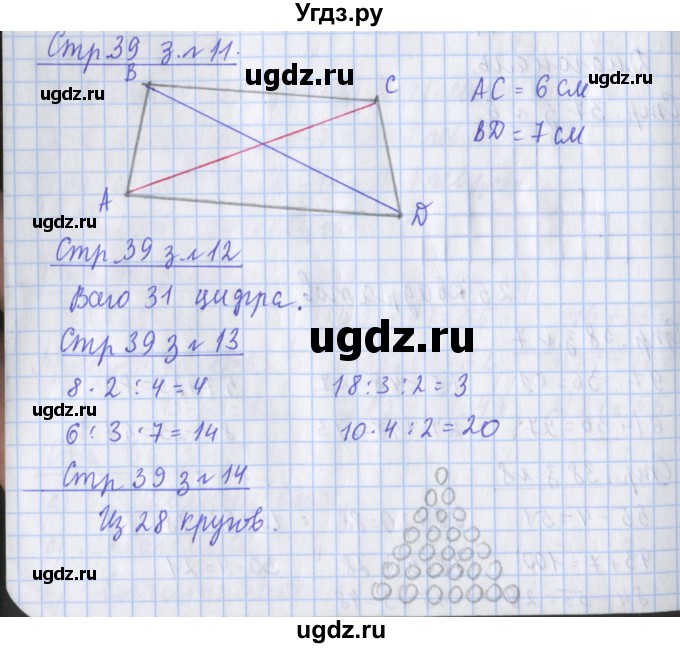 Угдз.ру
Стр 39 з.№11.
ugdz.ru
ugdz.ru
ugdz.ru
B
C
AC = 6 см
BD = 7 см
A
D
ugdz.ru
Стр 39 з.№12
Всего 31 цифра.
ugdz.ru
Стр 39 з №13
8 · 2 : 4 = 4
18 : 3 : 2 = 3
ugdz.ru
6 : 3 · 7 = 14
10 · 4 : 2 = 20
Стр 39 з №14
Из 28 кругов.
ugdz.ru
ugdz.ru
ugdz.ru